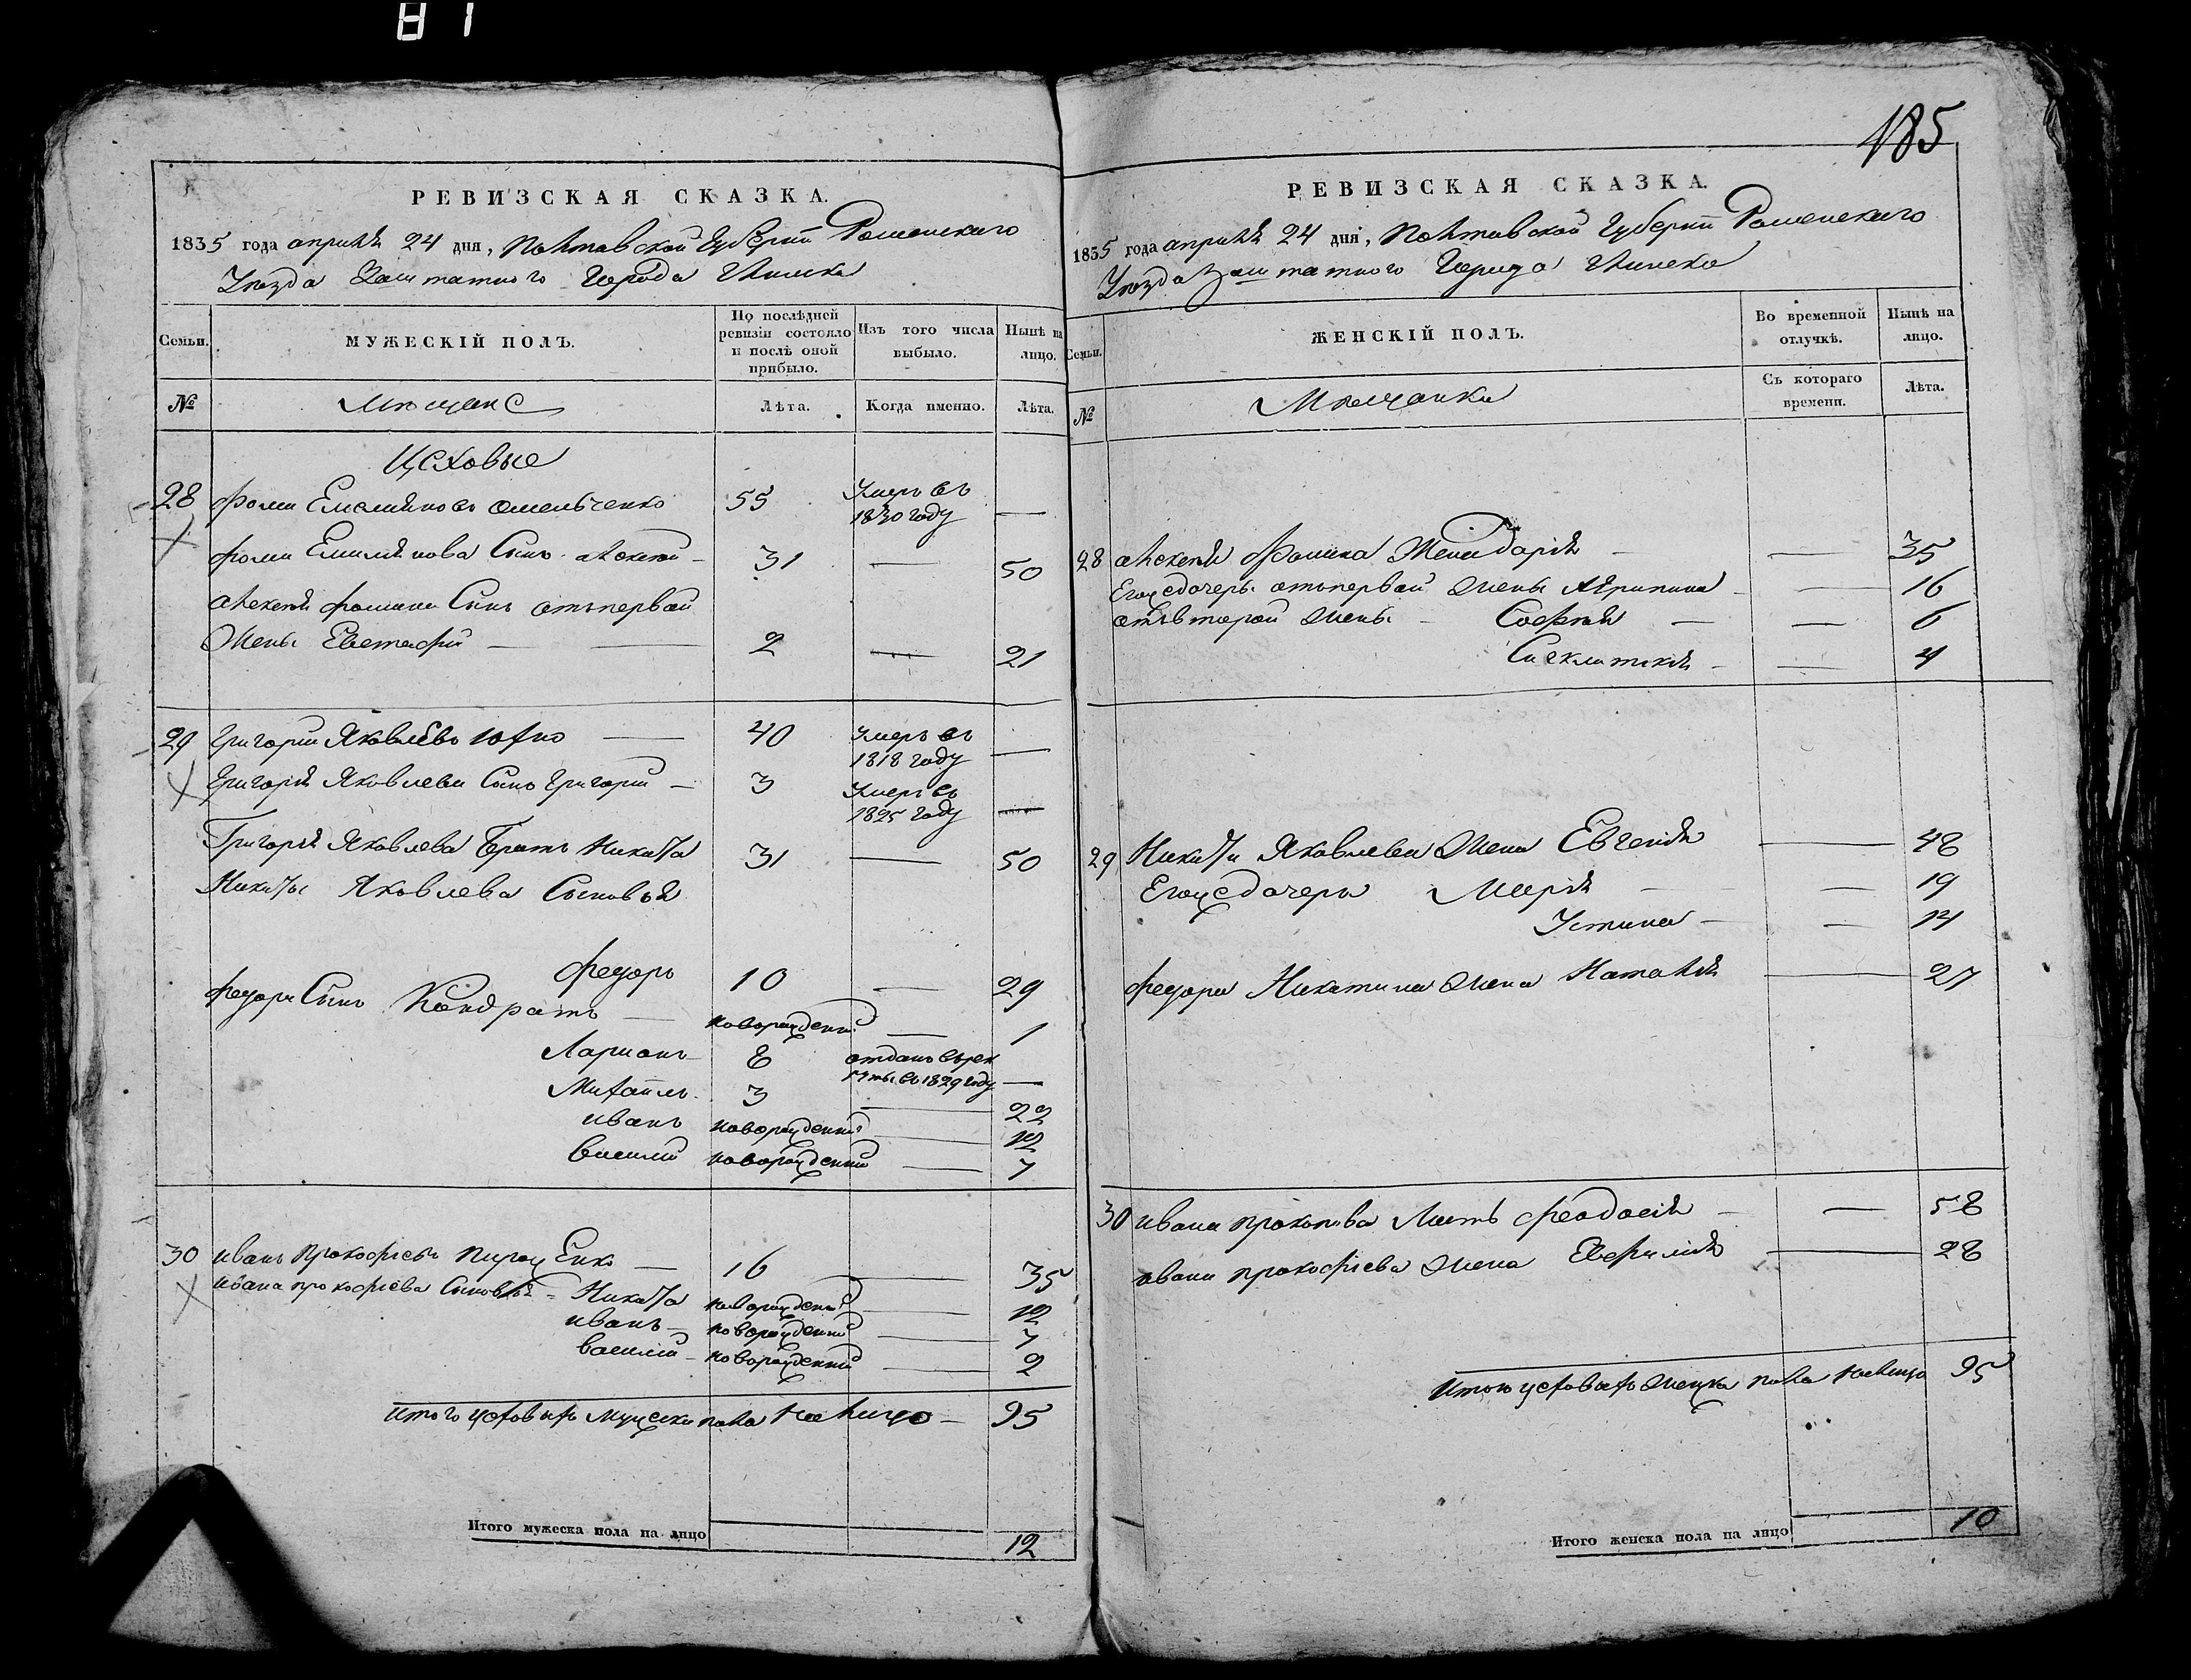 81
РЕВИЗСКАЯ СКАЗКА.
1835 года апрѣлѣ 24 дня, Полтавской Губерніи Роменскаго
Уезда Заштатного Города Глинска
Семьи.
МУЖЕСКІЙ ПОЛЪ.
По послѣдней ревизіи состояло и послѣ оной прибыло.
Изъ того числа выбыло.
Нынѣ на лицо.
№
Мещане
Лѣта.
Когда именно.
Лѣта.
Цеховые
28 Фома Емелияновъ Омельченко 55 Умеръ въ 1830 году —
Фомы Емелиянова Сынъ Алексей — 31 — 50
Алексея Фомина Сынъ отъ первой
Жены Евстафій — 2 — 21
29 Григорий Яковлевъ — 40 Умеръ въ 1818 году —
Григория Яковлева Сынъ Григорий — 3 Умеръ въ 1825 году —
Григория Яковлева Братъ Никита 31 — 50
Никиты Яковлева Сыновья
Федоръ 10 — 29
Федора Сынъ Кондратъ — новорожденный — 1
Ларионъ 8 отданъ въ рекруты въ 1829 году —
Михайлъ 3 — 22
Иванъ новорожденный — 12
Василий новорожденный — 7
30 Иванъ Прокофиевъ — 16 — 35
Ивана Прокофиева Сыновья - Никита новорожденный — 12
Иванъ — новорожденный — 7
Василий — новорожденный — 2
Итого цеховыхъ мужеска пола на лицо — 95
Итого мужеска пола на лицо 12
185
РЕВИЗСКАЯ СКАЗКА.
1835 года апрѣлѣ 24 дня, Полтавской Губерніи Роменскаго
Уезда Заштатного Города Глинска
Семьи.
ЖЕНСКІЙ ПОЛЪ.
Во временной отлучкѣ.
Нынѣ на лицо.
№
Мещанки
Съ котораго времени.
Лѣта.
28 Алексея Фомина Жена Дария — — 35
Егоже дочери отъ первой Жены Агрипина — — 16
отъ второй Жены — София — — 6
Синклитикия — — 4
29 Никиты Яковлева Жена Евгения — 48
Егоже дочери Мария — — 19
Устина — — 14
Федора Никитина Жена Наталия — 27
30 Ивана Прокопова Мать Феодосия — — 58
Ивана Прокофиева Жена Евфимия — 28
Итого цеховыхъ Женска пола налицо 95
Итого женска пола на лицо 10